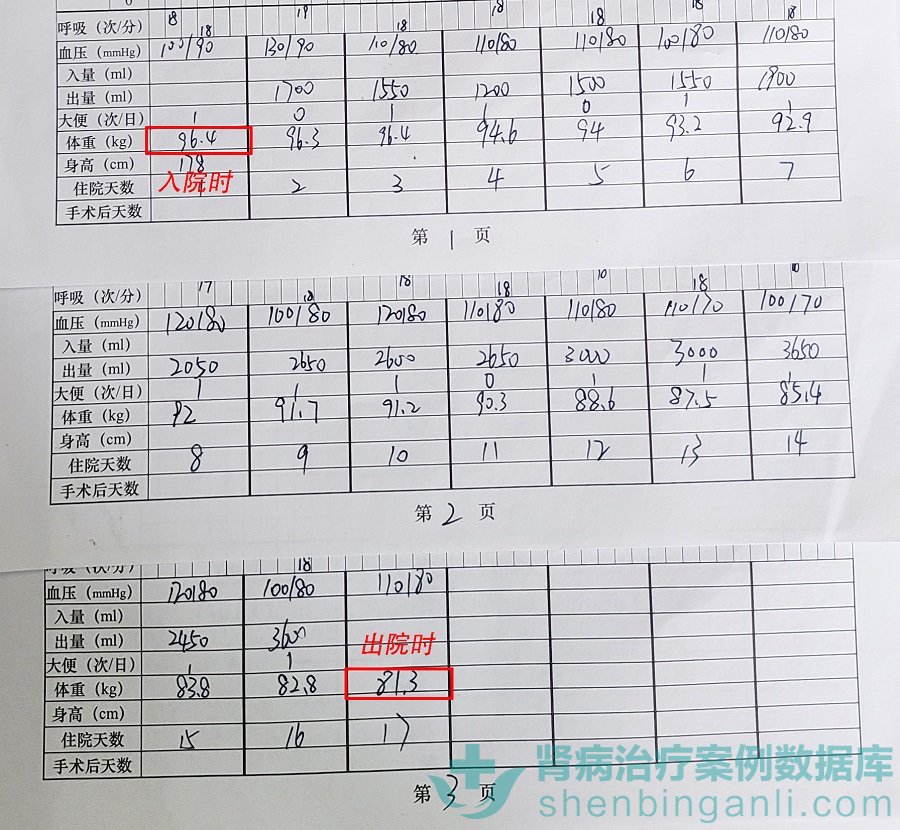 呼吸（次/分） 18 18 19 18 18 18 18 18
血压（mmHg） 100/90 130/90 110/80 110/80 110/80 100/80 110/80
入量（ml）
出量（ml） 1700 1550 1200 1500 1550 1900
大便（次/日） 1 0 1 1 0 1 1
体重（kg） 96.4 96.3 96.4 94.6 94 93.2 92.9
身高（cm） 178
入院时
住院天数 2 3 4 5 6 7
手术后天数
第 1 页
呼吸（次/分） 17 18 18 18 18
血压（mmHg） 120/80 100/80 120/80 110/80 110/80 110/70 100/70
入量（ml）
出量（ml） 2050 2650 2600 2650 3000 3000 3650
大便（次/日） 1 1 1 0 1 1 1
体重（kg） 92 91.7 91.2 90.3 88.6 87.5 85.4
身高（cm）
住院天数 8 9 10 11 12 13 14
手术后天数
第 2 页
呼吸（次/分） 18
血压（mmHg） 120/80 100/80 110/80
入量（ml）
出量（ml） 2450 3600
出院时
大便（次/日） 1 1
体重（kg） 83.8 82.8 81.3
身高（cm）
住院天数 15 16 17
手术后天数
第 3 页
肾病治疗案例数据库
shenbinganli.com